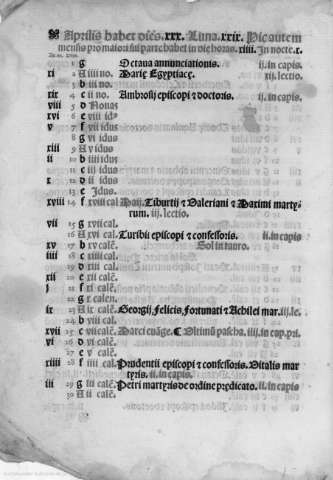 Aprilis habet dies .xxx. Luna .xxix. Dies autem
mensis pro maiori sui parte habet in die horas .xiiii. In nocte .x.
1 g Octava annunciationis. ij. in capis
xi 2 A iiii no. Marie Egyptiace. xij. lectio.
3 b iii no.
xix 4 c ii no. Ambrosij episcopi z doctoris. ij. in capis
viii 5 d Nonas
xvi 6 e viii id
v 7 f vii idus
8 g vi idus
xiii 9 A v idus
ii 10 b iiii idus
11 c iii idus
x 12 d ii idus
13 e Idus.
xviii 14 f xviii cal. Maij. Tiburtij z Valeriani z Maximi marty-
rum. iij. lectio.
vii 15 g xvii cal.
16 A xvi cal. Turibii episcopi z confessoris. ij. in capis
xv 17 b xv calē. Sol in tauro.
iiii 18 c xiiii cal.
19 d xiii cal.
xii 20 e xii calē.
i 21 f xi calē.
22 g x calen.
ix 23 A ix calē. Georgij, felicis, fortunati z Achilei mar. iij. le.
24 b viii cal.
xvii 25 c vii calē. Marci euāge. Ultimū pascha. iiij. in cap. pri.
vi 26 d vi calē.
27 e v calē.
xiiii 28 f iiii cal. Prudentii episcopi z confessoris. Vitalis mar
tyris. ii. in capis.
iii 29 g iii calē. Petri martyris de ordine predicato. ii. in capis
30 A ii calē.